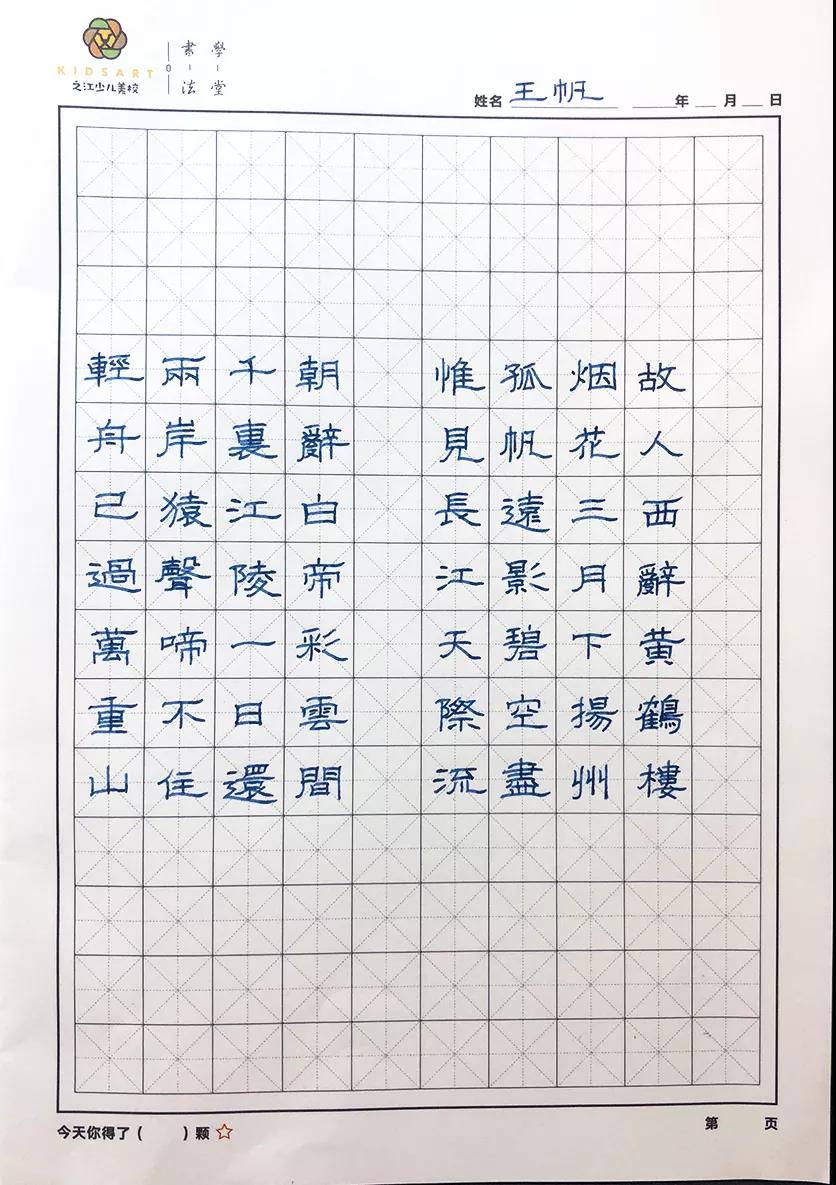 KIDSART
之江少儿美校
學堂
書法
姓名 王帆 年 月 日
故人西辭黄鶴樓
烟花三月下揚州
孤帆遠影碧空盡
惟見長江天際流
朝辭白帝彩雲間
千裏江陵一日還
兩岸猿聲啼不住
輕舟已過萬重山
今天你得了( )颗☆
第 页